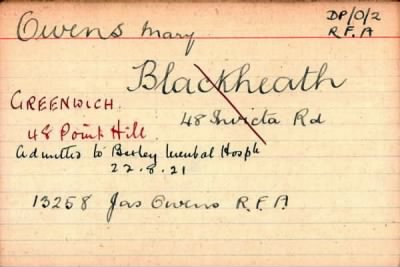 Owens Mary
DP/O/2
R.F.A
Blackheath
GREENWICH.
48 Invicta Rd
48 Point Hill.
Admitted to Bexley Mental Hosptl
22.8.21
13258 Jas Owens R.F.A.